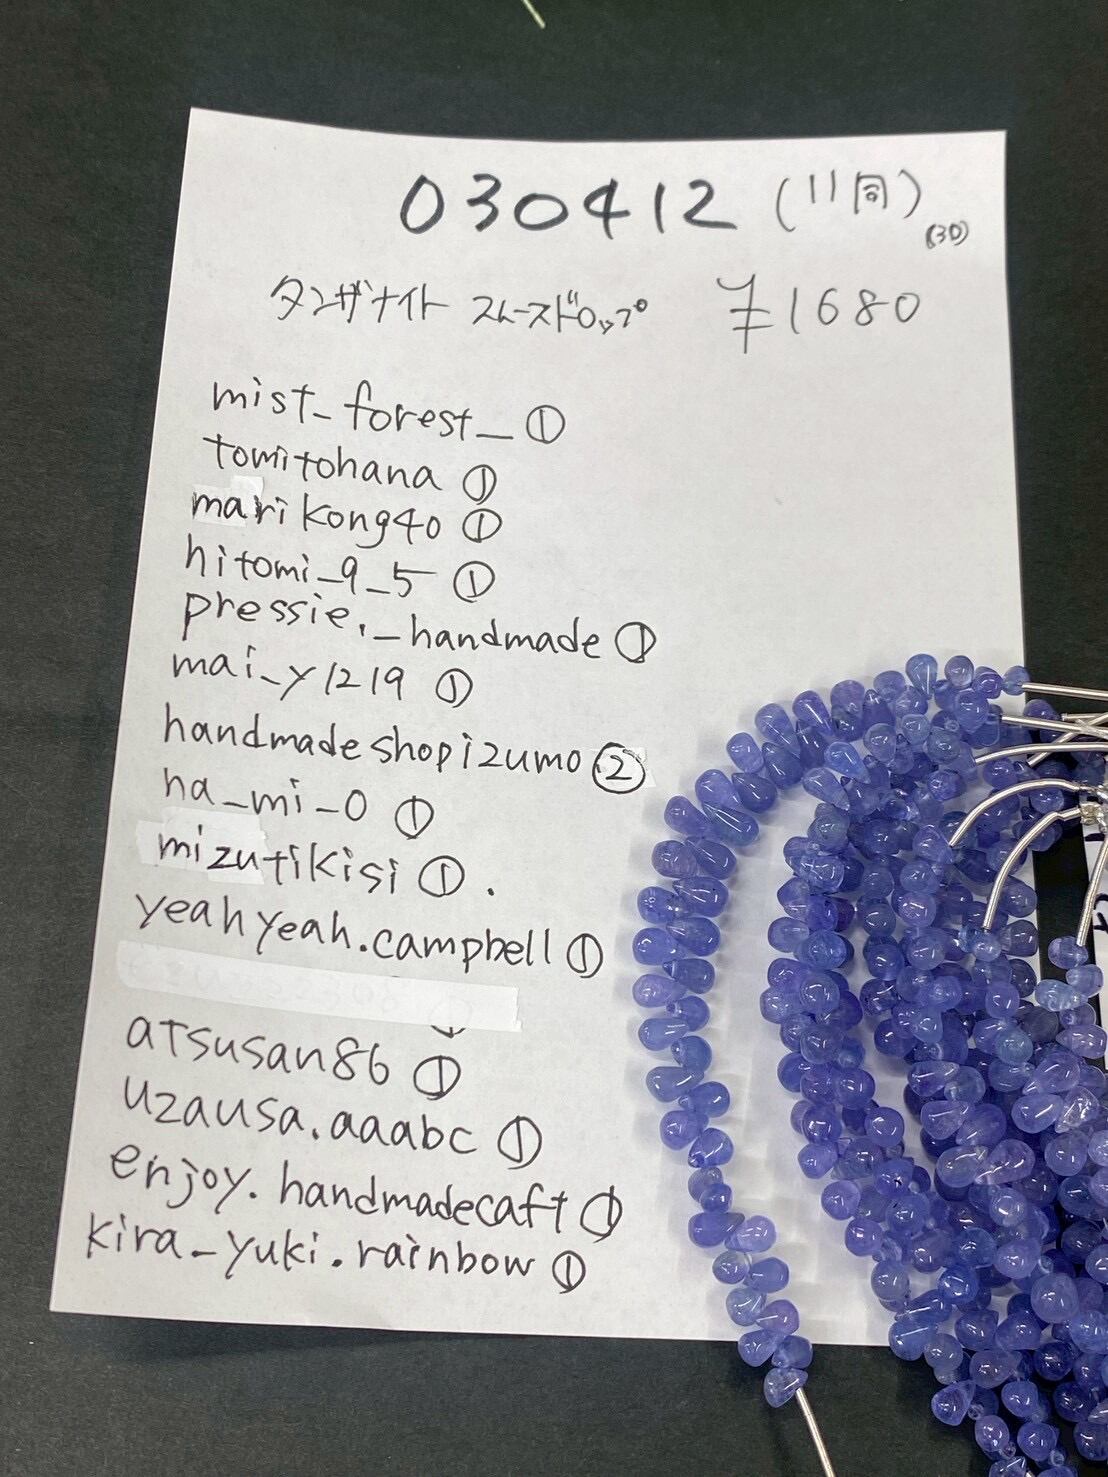 030412 (11同)
(30)
タンザナイト スムースドロップ ¥1680
mist_forest_ ①
tomitohana ①
marikong40 ①
hitomi_9_5 ①
pressie._handmade ①
mai_y1219 ①
handmadeshopizumo ②
ha_mi_0 ①
mizutikisi ①.
yeahyeah.campbell ①
atsusan86 ①
uzausa.aaabc ①
enjoy.handmadecaft ①
kira_yuki.rainbow ①